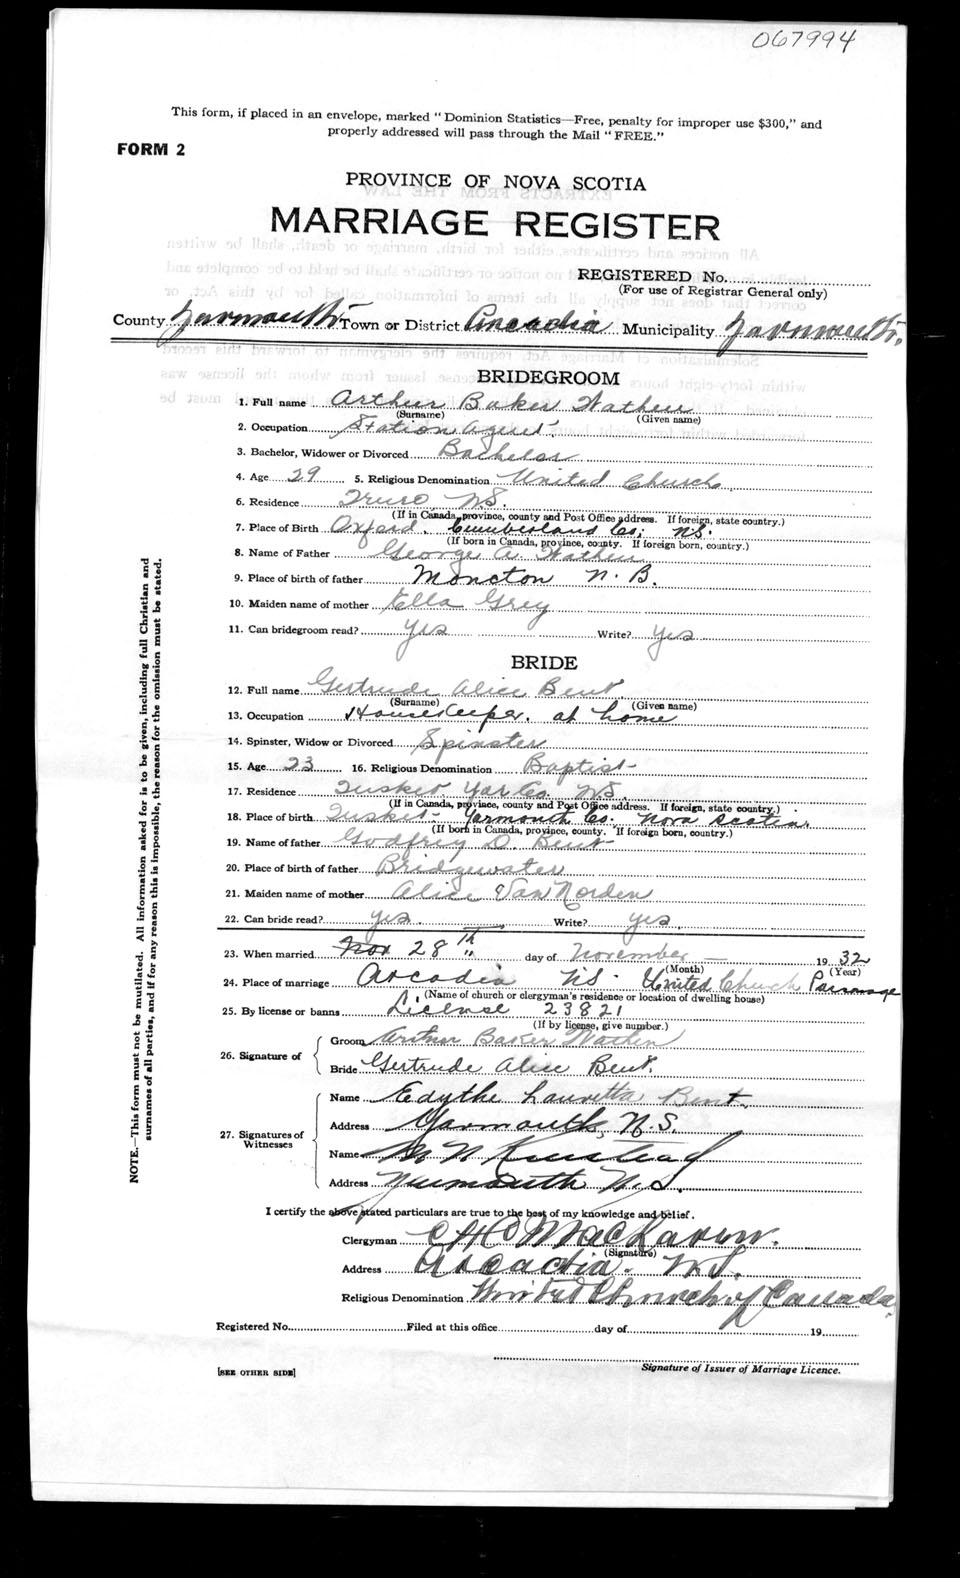 067994
This form, if placed in an envelope, marked " Dominion Statistics—Free, penalty for improper use $300," and
properly addressed will pass through the Mail " FREE."
FORM 2
PROVINCE OF NOVA SCOTIA
MARRIAGE REGISTER
REGISTERED No.
(For use of Registrar General only)
County Yarmouth Town or District Arcadia Municipality Yarmouth.
BRIDEGROOM
1. Full name Arthur Baker Wathen
(Surname) (Given name)
2. Occupation Station Agent.
3. Bachelor, Widower or Divorced Bachelor
4. Age 29 5. Religious Denomination United Church
6. Residence Truro NS.
(If in Canada, province, county and Post Office address. If foreign, state country.)
7. Place of Birth Oxford. Cumberland Co; NS.
(If born in Canada, province, county. If foreign born, country.)
8. Name of Father George A. Wathen
9. Place of birth of father Moncton N. B.
10. Maiden name of mother Ella Grey
11. Can bridegroom read? yes Write? yes
BRIDE
12. Full name Gertrude Alice Bent.
(Surname) (Given name)
13. Occupation Housekeeper. at home
14. Spinster, Widow or Divorced Spinster
15. Age 23 16. Religious Denomination Baptist
17. Residence Tusket Yar Co. NS
(If in Canada, province, county and Post Office address. If foreign, state country.)
18. Place of birth Tusket - Yarmouth Co. Nova Scotia.
(If born in Canada, province, county. If foreign born, country.)
19. Name of father Godfrey D. Bent
20. Place of birth of father Bridgewater
21. Maiden name of mother Alice VanNorden
22. Can bride read? yes. Write? yes
23. When married Nov 28th day of November 1932
(Month) (Year)
24. Place of marriage Arcadia NS. United Church Parsonage
(Name of church or clergyman's residence or location of dwelling house)
25. By license or banns License 23821
(If by license, give number.)
26. Signature of
Groom Arthur Baker Wathen
Bride Gertrude Alice Bent.
27. Signatures of Witnesses
Name Edythe Lauretta Bent.
Address Yarmouth, N.S.
Name
Address Yarmouth N.S.
I certify the above stated particulars are true to the best of my knowledge and belief.
Clergyman
(Signature)
Address Arcadia. N.S.
Religious Denomination United Church of Canada.
Registered No. Filed at this office day of 19
Signature of Issuer of Marriage Licence.
[SEE OTHER SIDE]
NOTE.—This form must not be mutilated. All information asked for is to be given, including full Christian and
surnames of all parties, and if for any reason this is impossible, the reason for the omission must be stated.